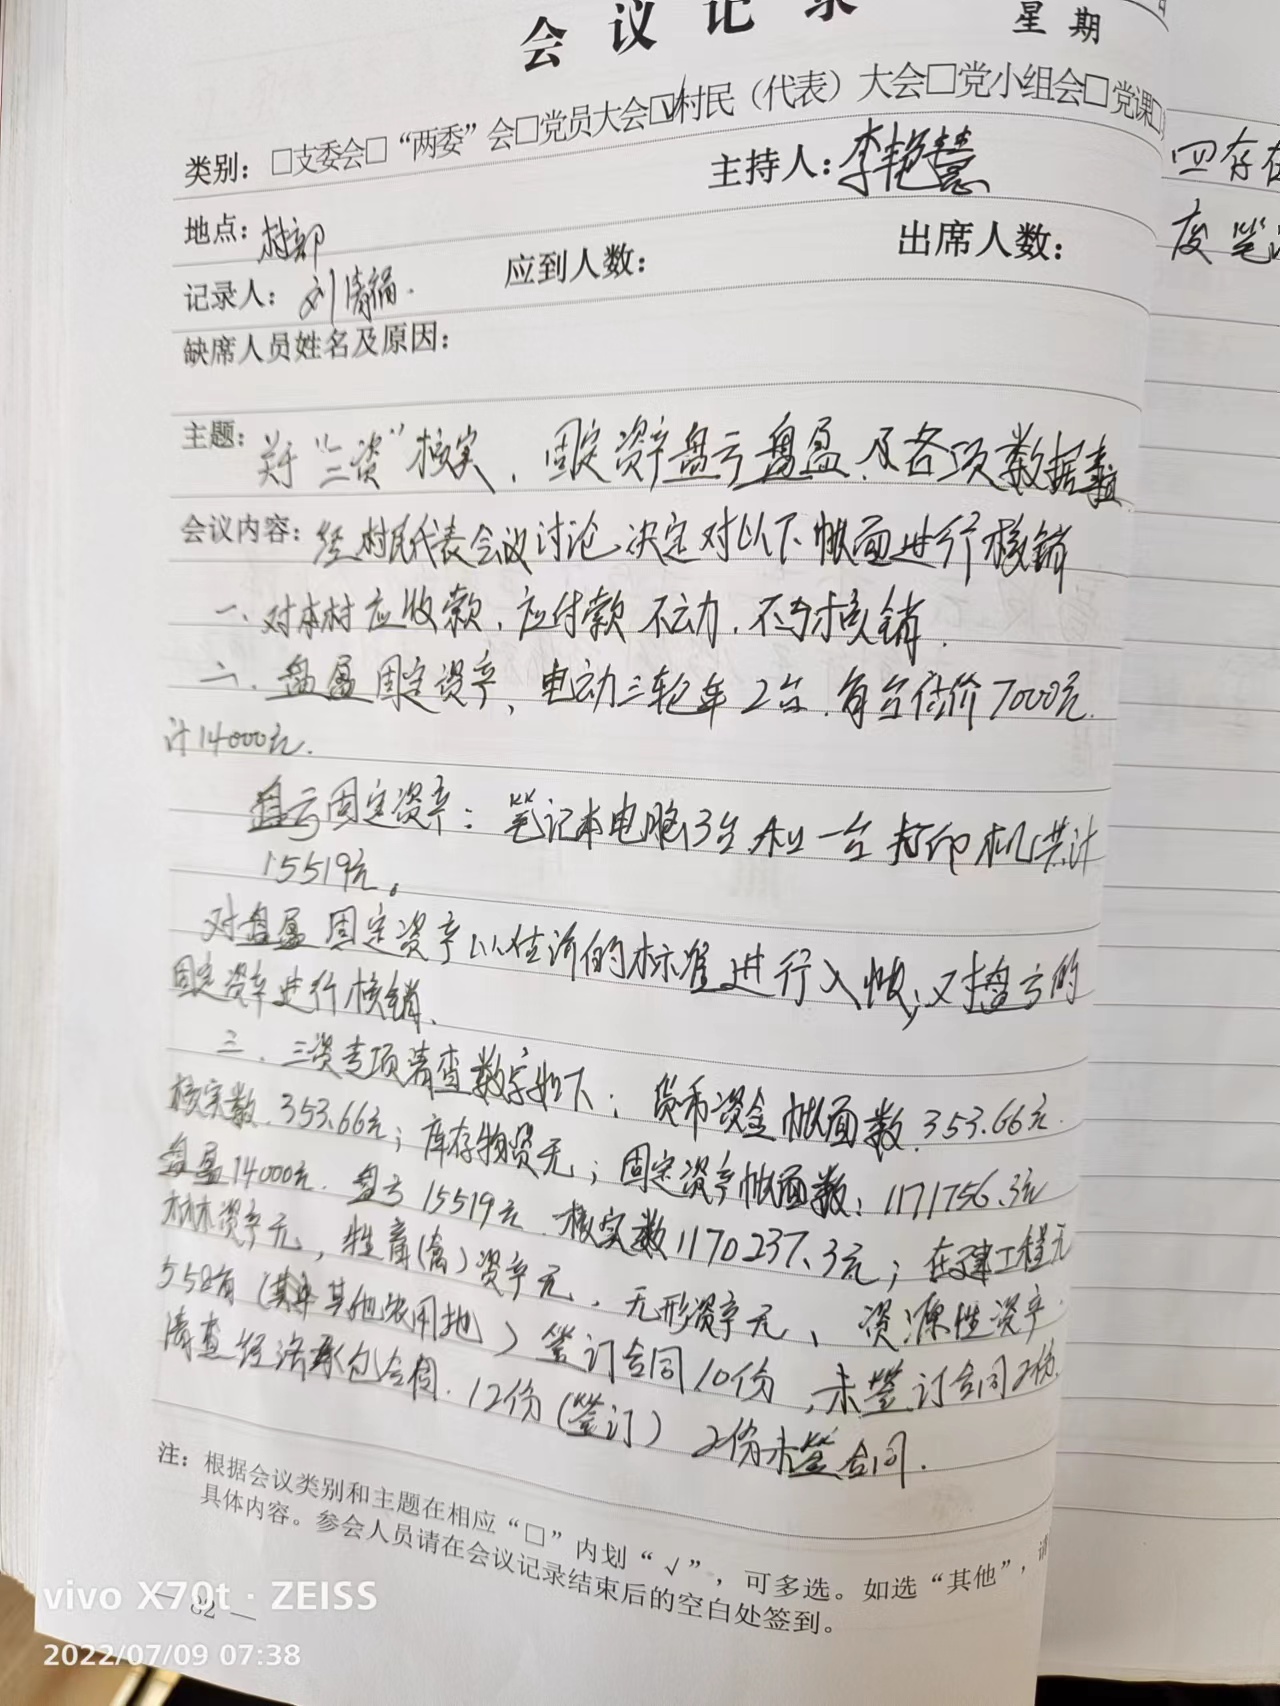 会议记录
星期
类别：□支委会□“两委”会□党员大会☑村民（代表）大会□党小组会□党课□
地点：村部 主持人：李艳慧
记录人：刘 应到人数： 出席人数：
缺席人员姓名及原因：
主题：关于“三资”核实、固定资产盘亏盘盈、及各项数据
会议内容：经村民代表会议讨论、决定对以下帐面进行核销
一、对本村应收款、应付款不动、不予核销.
二、盘盈固定资产、电动三轮车2台、每台估价7000元.
计14000元.
盘亏固定资产：笔记本电脑3台和一台打印机共计
15519元。
对盘盈固定资产以估价的标准进行入帐，对盘亏的
固定资产进行核销.
三、三资专项清查数字如下：货币资金帐面数353.66元.
核实数.353.66元；库存物资无；固定资产帐面数：1171756.3元
盘盈14000元.盘亏15519元.核实数1170237.3元；在建工程无
林木资产无，牲畜(禽)资产无，无形资产无、资源性资产
558亩(其中其他农用地)签订合同10份，未签订合同2份.
清查经济承包合同.12份(签订)2份未签合同.
注：根据会议类别和主题在相应“□”内划“√”，可多选。如选“其他”，请
具体内容。参会人员请在会议记录结束后的空白处签到。
— 82 —
四存在
度笔记
vivo X70t · ZEISS
2022/07/09 07:38